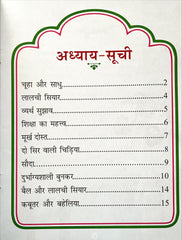 अध्याय-सूची
चूहा और साधु.....2
लालची सियार.....4
व्यर्थ सुझाव.....5
शिक्षा का महत्त्व.....6
मूर्ख दोस्त.....7
दो सिर वाली चिड़िया.....8
सौदा.....9
दुर्भाग्यशाली बुनकर.....10
बैल और लालची सियार.....14
कबूतर और बहेलिया.....15